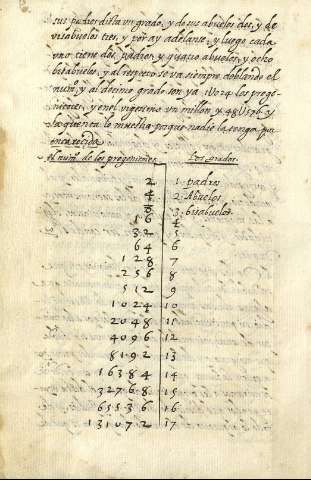 sus padres dista un grado, y de sus abuelos dos, y de
visabuelos tres, y por ay adelante, y luego cada
uno tiene dos padres, y quatro abuelos, y ocho
bisabuelos, y al respecto se va siempre doblando el
numº, y al decimo grado son ya 1U024 los proge-
nitores, y en el vigessimo un millon, y 48U576 y
la quenta lo muestra porque nadie la tenga por
encarecida.
el numº. de los progenitores Los grados.
2 1 padres
4 2 Abuelos
8 3 bisabuelos
16 4
32 5
64 6
128 7
256 8
512 9
1024 10
2048 11
4096 12
8192 13
16384 14
32768 15
65536 16
131072 17